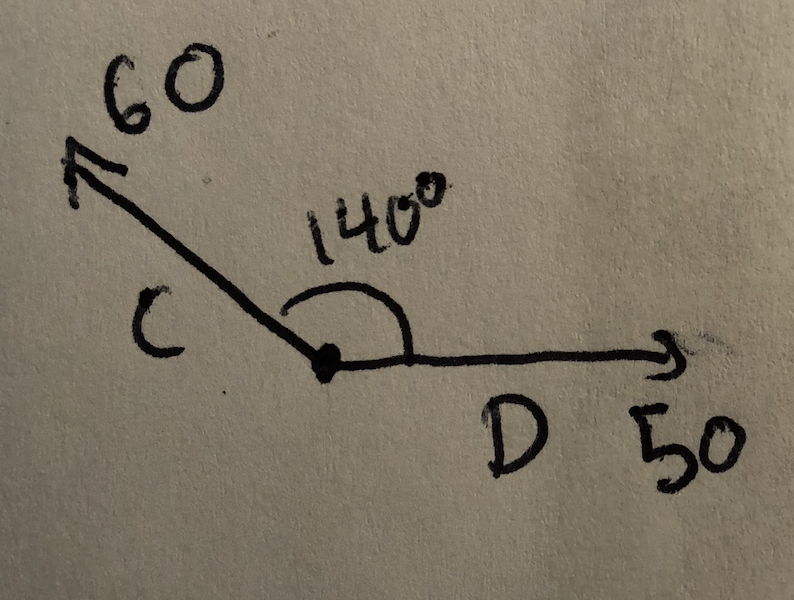 60
140°
C
D
50